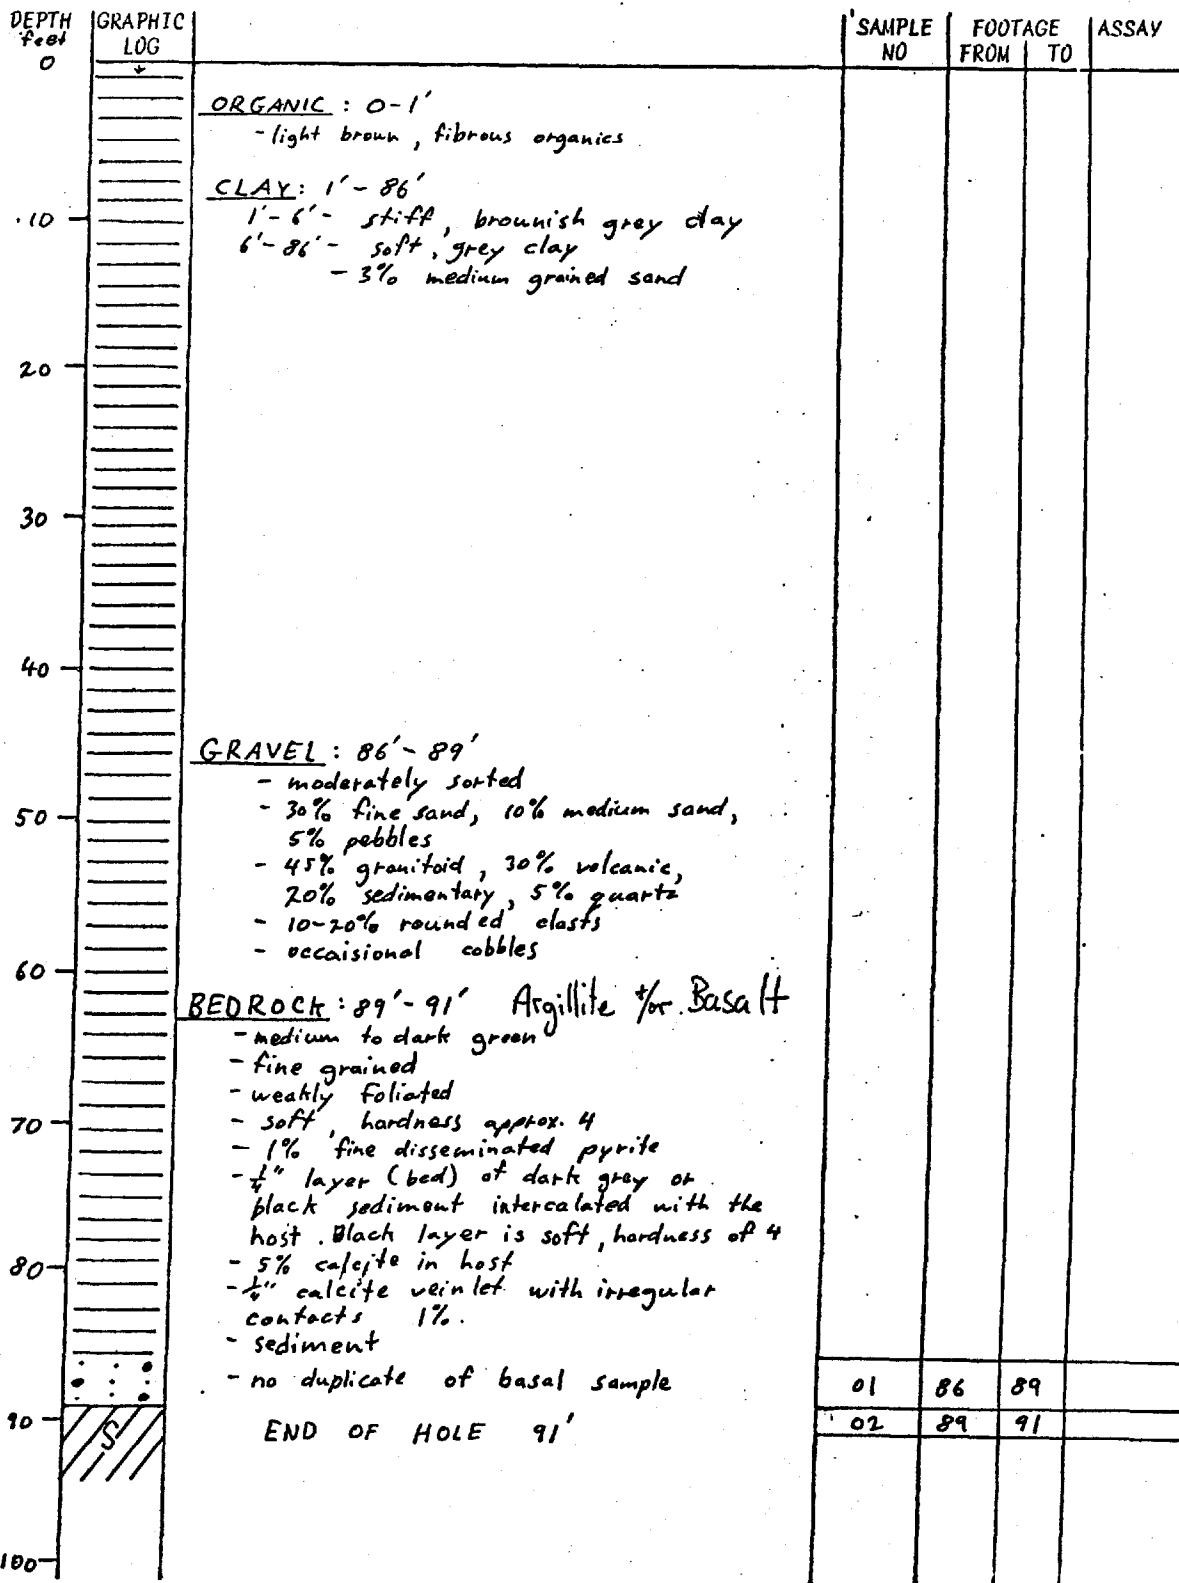 DEPTH feet GRAPHIC LOG SAMPLE NO FOOTAGE FROM TO ASSAY
0
ORGANIC : 0-1'
- light brown, fibrous organics
CLAY: 1' - 86'
10
1' - 6' - stiff, brownish grey clay
6' - 86' - soft, grey clay
- 3% medium grained sand
20
30
40
GRAVEL : 86' - 89'
- moderately sorted
- 30% fine sand, 10% medium sand,
50
5% pebbles
- 45% granitoid, 30% volcanic,
20% sedimentary, 5% quartz
- 10-20% rounded clasts
- occaisional cobbles
60
BEDROCK : 89' - 91' Argillite +/or Basalt
- medium to dark green
- fine grained
- weakly foliated
70
- soft, hardness approx. 4
- 1% fine disseminated pyrite
- 1/4" layer (bed) of dark grey or
black sediment intercalated with the
host. Black layer is soft, hardness of 4
80
- 5% calcite in host
- 1/4" calcite veinlet with irregular
contacts 1%.
- sediment
- no duplicate of basal sample
01 86 89
90
S
END OF HOLE 91'
02 89 91
100